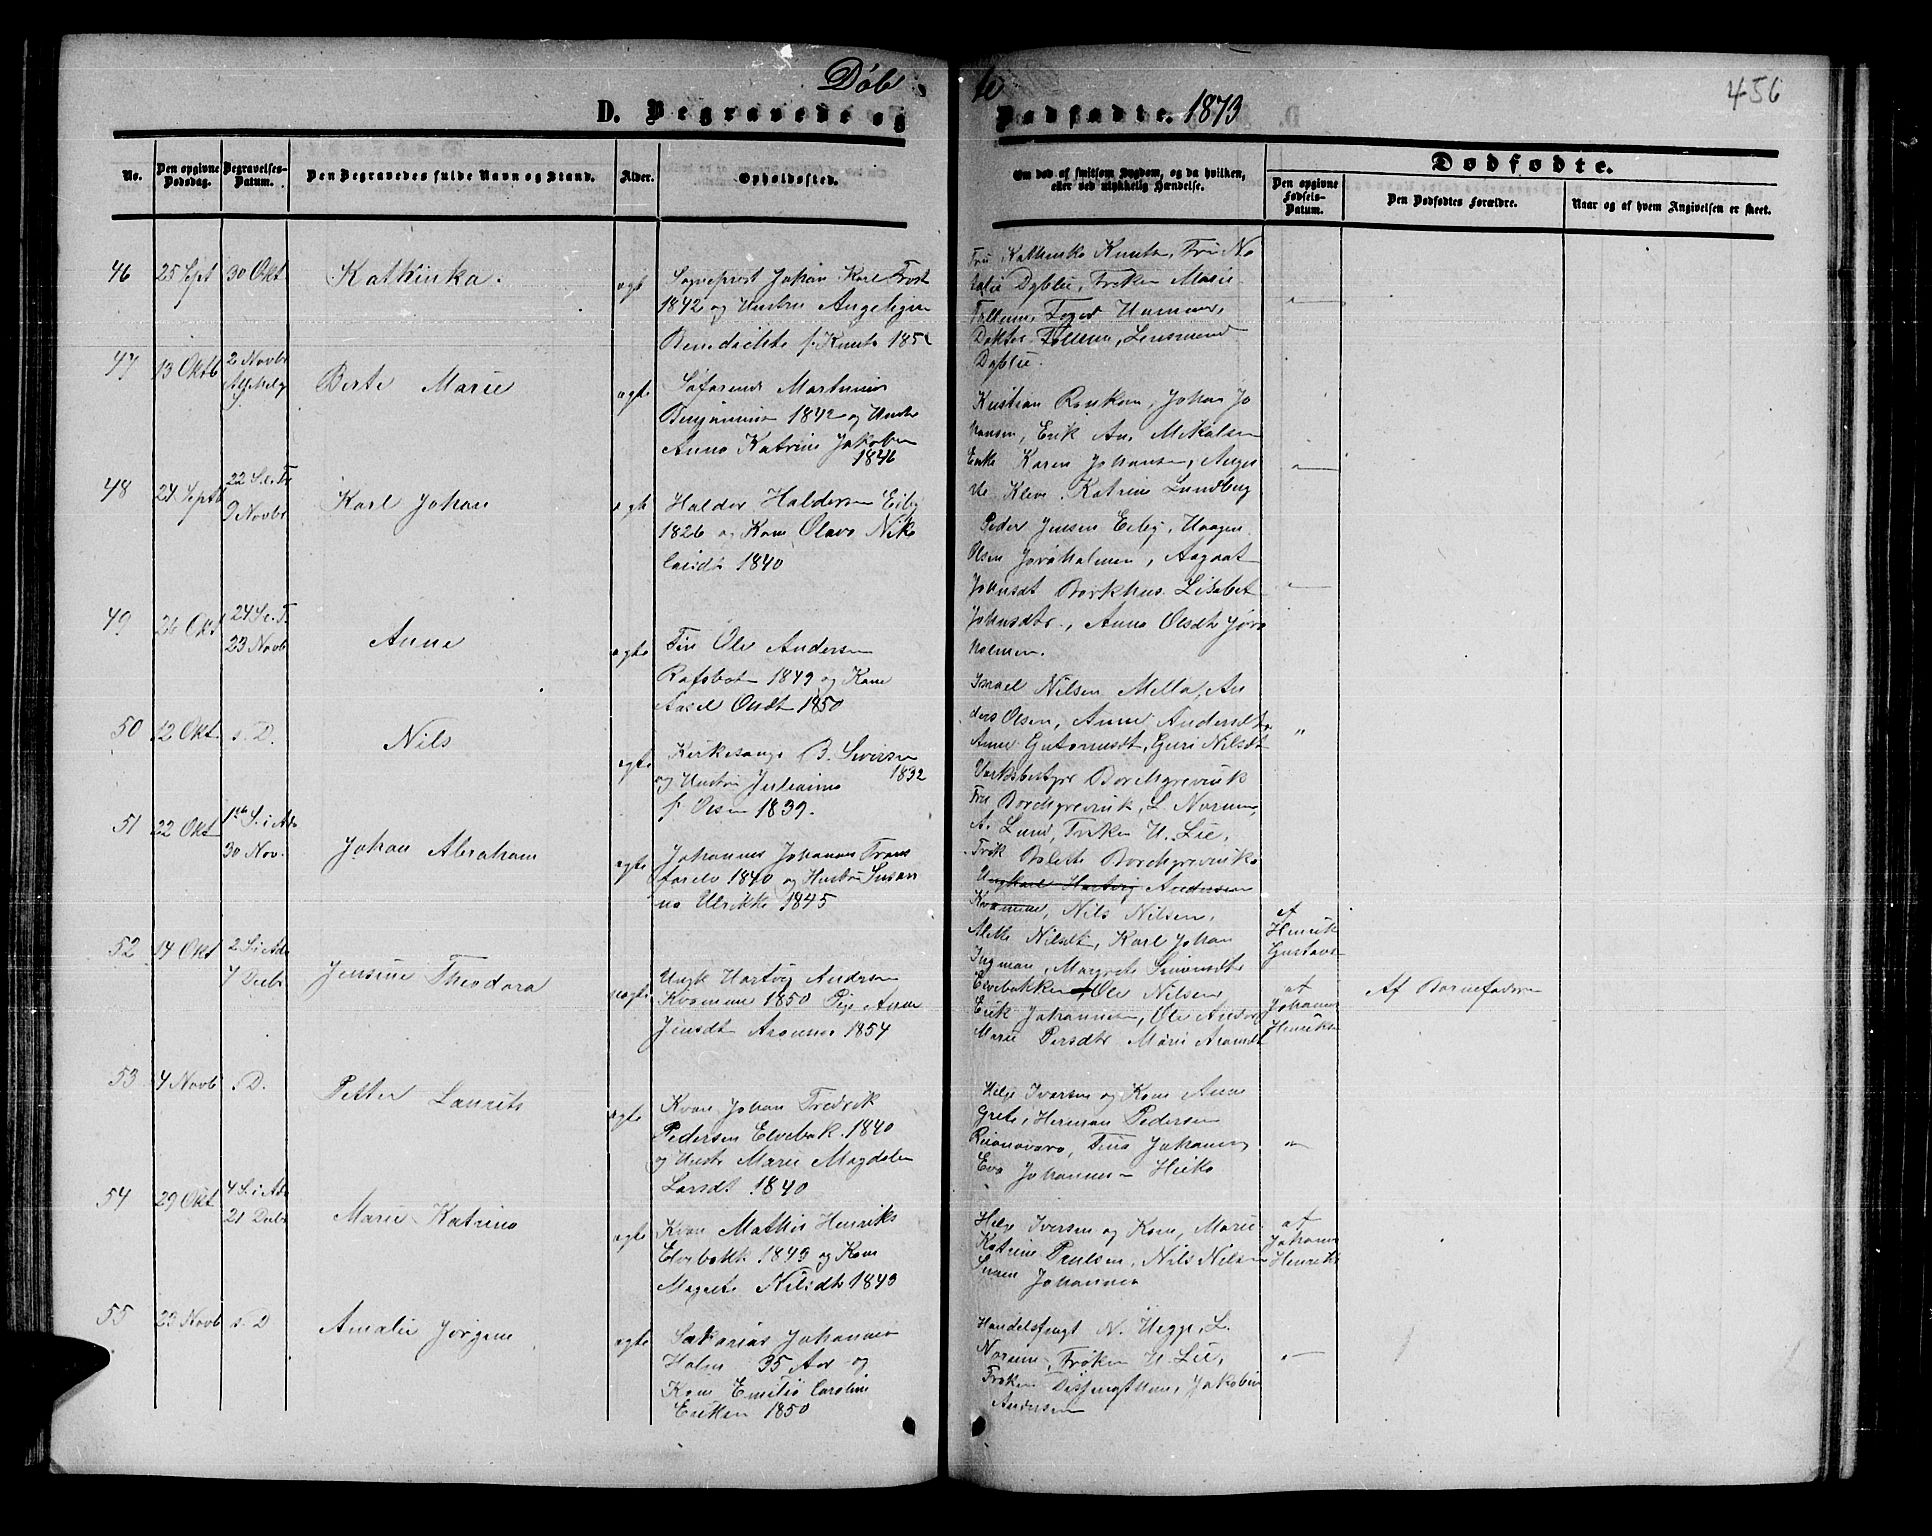 Døb
te
456
D. Begravede og
Dødfødte. 1873
No.
Den opgivne Dødsdag.
Begravelses-Datum.
Den Begravedes fulde Navn og Stand.
Alder.
Opholdssted.
Om død af smitsom Sygdom, og da hvilken, eller ved ulykkelig Hændelse.
Dødfødte.
Den opgivne Fødsels-Datum.
Den Dødfødtes Forældre.
Naar og af hvem Angivelsen er skeet.
46 25 Sept 30 Okt Kathinka. ægt
Sogneprest Johan Karl Frost
1842 og Hustru Angeligu
Benedichte f. Knuts 185
Fru Kathinka Knuts, Fru Na
talie Dybli, Frøken Marie
Foged
Doktor Lensmand
Dybli.
47 13 Oktb 2 Novbr Berte Marie ægte
Søfarende Martinius
Benjamins 1842 og Hustr
Anna Katrine Jakobsn
1846
Kristian Johan Jo
hansen, Erik An. Mikalsen
Enke Karen Johansen,
Kleve, Katrine Lundberg
48 24 Septb 22 S.e.Tr 9 Novbr Karl Johan ægte
Haldor Haldorsen Eiby
1826 og Kone Olava Niko
laisdr 1840
Peder Jensen Eiby, Haagen
Olsen Jøraholmen, Aagaat
Johnsdt Borkhus. Lisabet
Johnsdtr., Anna Olsdtr Jøra
holmen.
49 26 Okt 24 S.e.T. 23 Novb Anne ægte
Fin Ole Andersen
Rafsbotn 1849 og Kone
Olsdt 1850
Ismael Nilsen, Mella, An
ders Olsen, Anne Andersdtr
Anne Gutormsdt, Guri Nilsdt
50 12 Okt s. D. Nils ægte
Kirkesanger B. Siversen
1832
og Hustru Julianna
f. Olsen 1839.
Værksbestyr Borchgrevink
Fru Borchgrevink, L. Norum,
A. Lund, Frøken U. Lie,
Frøk Bolette Borchgrevink
51 22 Okt 1ste S. i Adv 30 Nov. Johan Abraham ægte
Johannes Johansn Trans
farelv 1840 og Hustru Susan
na Ulrikke 1845
Ungkarl Hartvig Andersen
Kvænne, Nils Nilsen,
Mette Nilsdt, Karl Johan
Ingman, Margrete Simonsdtr
af
Henrik
Gustavs
52 14 Okt 2 S. i Adv 7 Decbr Jensine Theodora uægte
Ungk Hartvig Andersen
Kvænne 1850 Pige Anne
Jensdt Aronnes 1854
Elvebakken, Ole Nilsen
Erik Johannesen, Ole Anders
Marie Persdtr Marie Aronsdt
af
Johannes
Henriks
Af Barnefaderen
53 4 Novb s. D. Petter Laurits ægte
Kvæn Johan Fredrik
Pedersen Elvebak. 1840
og Hustr Marie Magdalen
Larsdt 1840
Helge Iversen og Kone Anne
Grete, Herman Pedersen
Johannes,
Eva Johannes
54 29 Okt 4 S. i Adv 21 Decbr Marie Katrine ægte
Kvæn Mathis Henriks
Elvebakk 1849 og Kone
Magrete Nilsdtr 1843
Helge Iversen og Kone, Marie
Katrine Paulsen, Nils Nilsen
Johannes
af
Johanns
Henriks
55 23 Novb s. D Amalie Jørgine ægte
Sakarias Johannes
Holm 35 Aar og
Kone Emilie Caroline
Eriksen 1850
Handelsfugt N. Uegge, L.
Norum, Frøken U. Lie,
Frøken Jakobin
Andersen